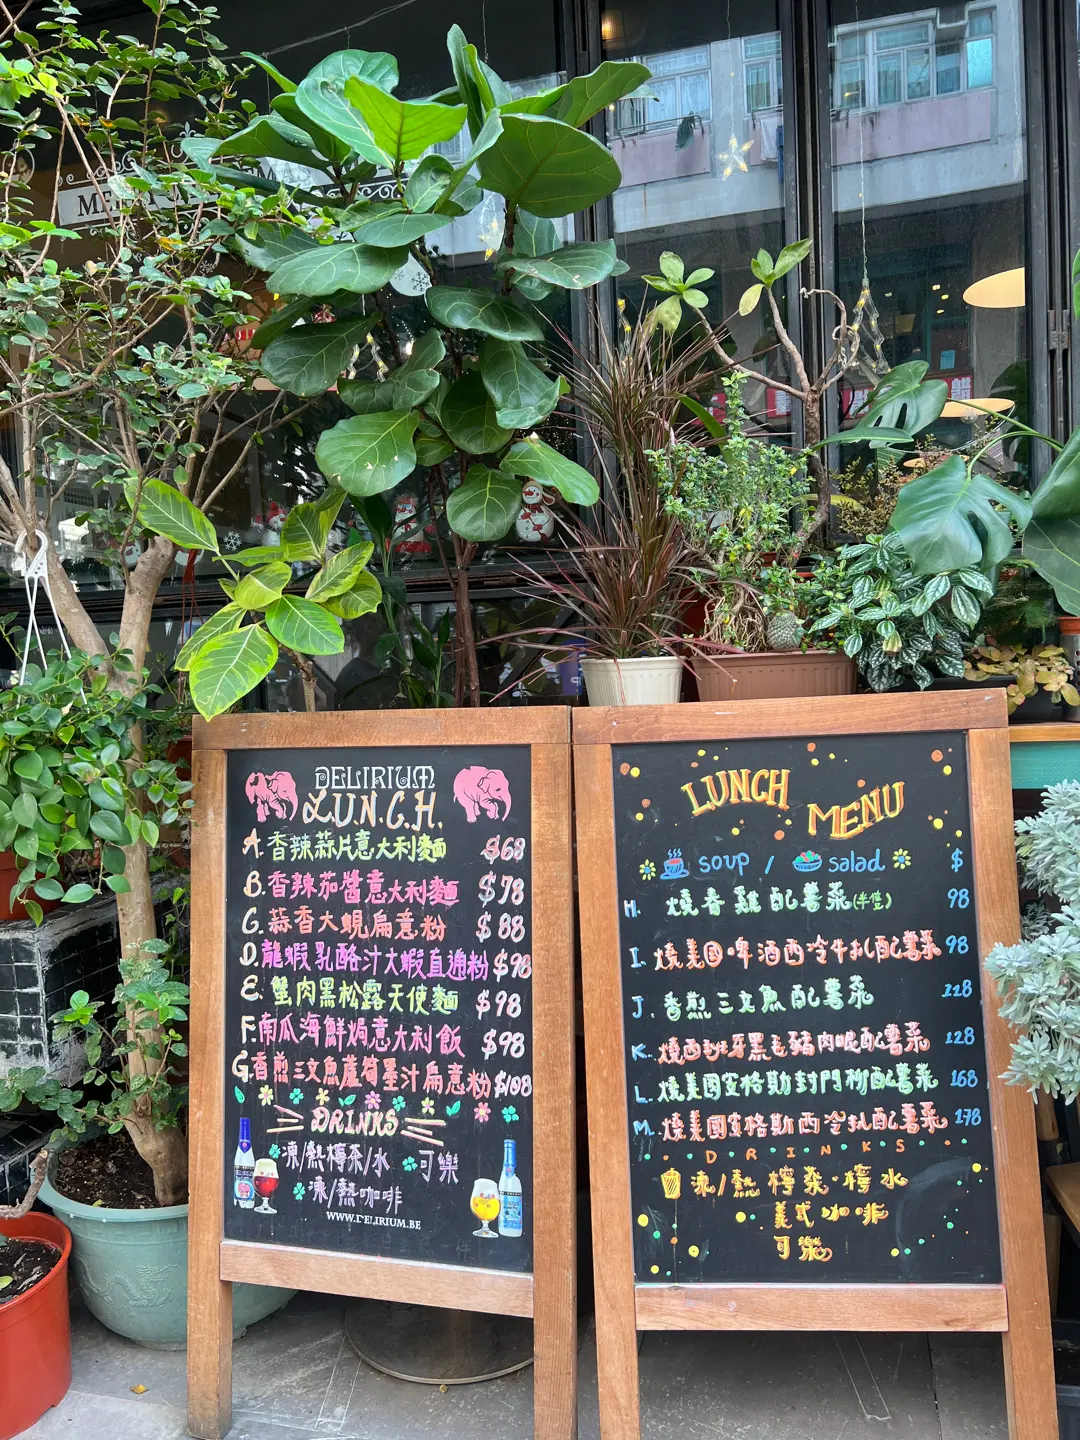 DELIRIUM
L.U.N.C.H.
A. 香辣蒜片意大利麵 $68
B. 香辣茄醬意大利麵 $78
C. 蒜香大蜆扁意粉 $88
D. 龍蝦乳酪汁大蝦直通粉 $98
E. 蟹肉黑松露天使麵 $98
F. 南瓜海鮮焗意大利飯 $98
G. 香煎三文魚蘆筍墨汁扁意粉 $108
DRINKS
凍/熱檸茶/水 可樂
凍/熱咖啡
WWW.DELIRIUM.BE
LUNCH
MENU
soup / salad $
H. 燒春雞配薯菜(半隻) 98
I. 燒美國啤酒西冷牛扒配薯菜 98
J. 香煎三文魚配薯菜 118
K. 燒西班牙黑毛豬肉眼配薯菜 128
L. 燒美國安格斯封門柳配薯菜 168
M. 燒美國安格斯西冷扒配薯菜 178
DRINKS
凍/熱檸茶·檸水
美式咖啡
可樂